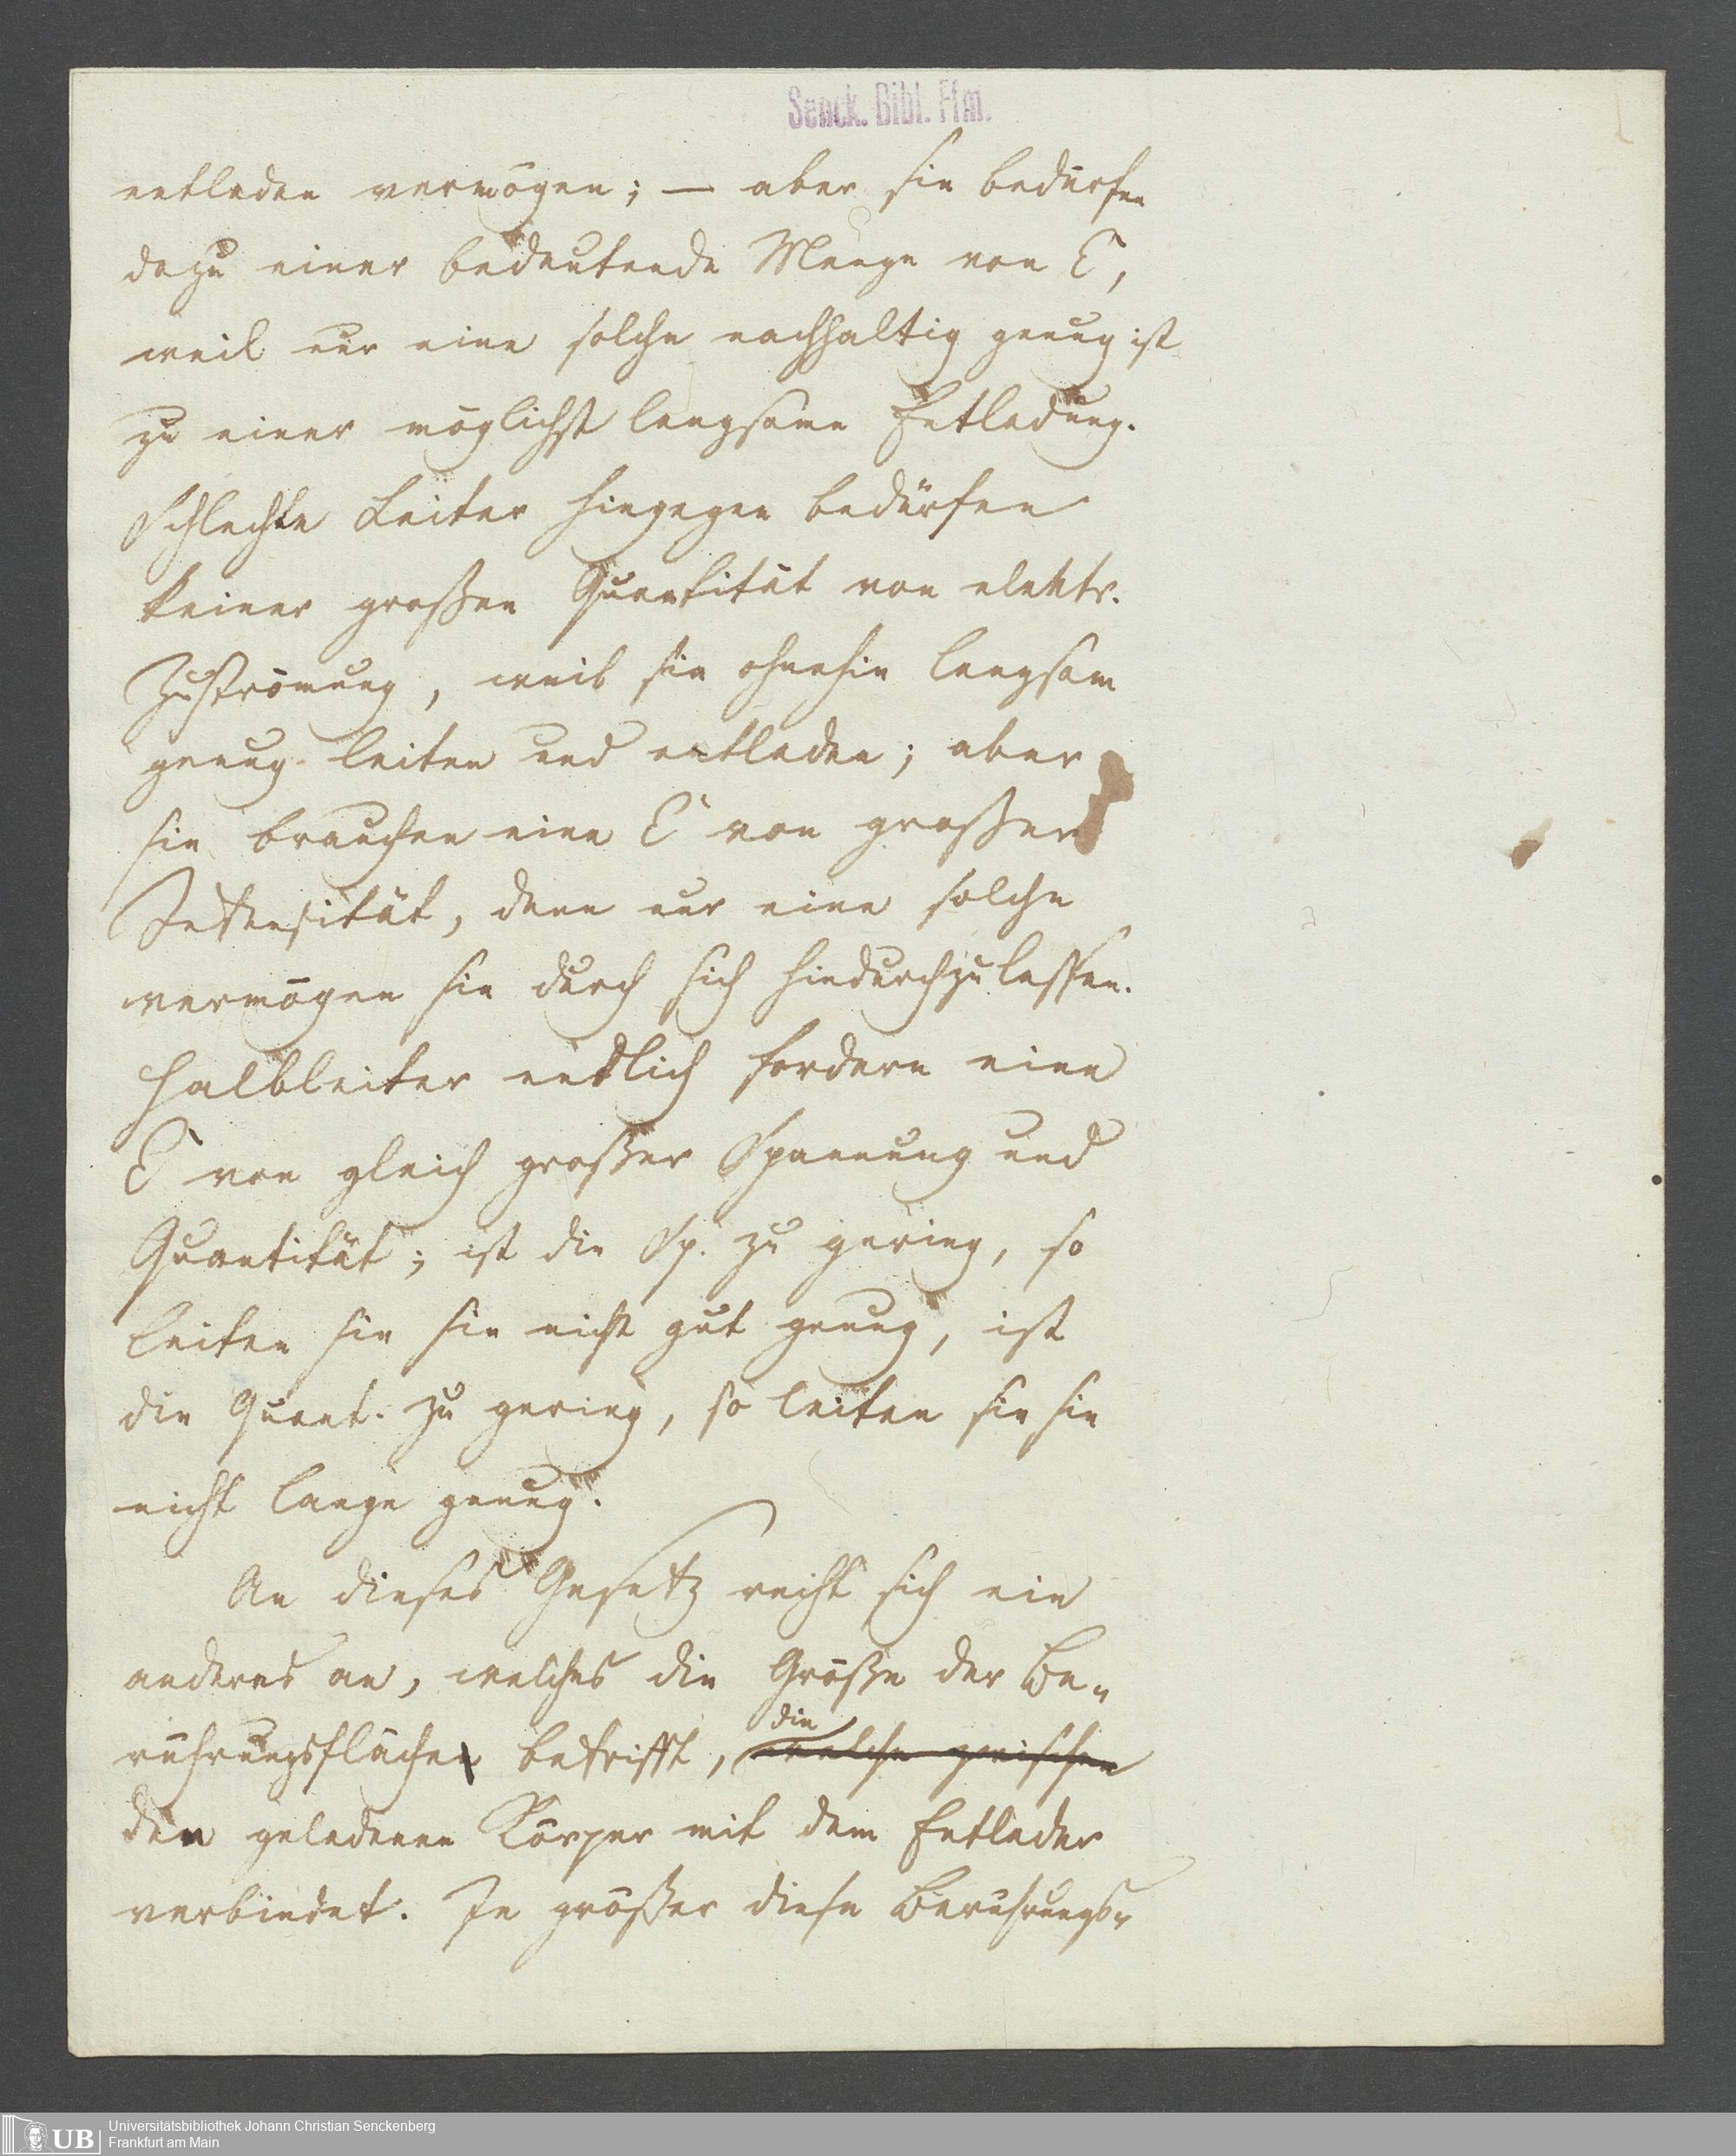 Senck. Bibl. Ffm.
entladen vermögen; — aber sie bedürfen
dazu einer bedeutende Menge von E,
weil nur eine solche nachhaltig genug ist
zu einer möglichst langsame Entladung.
Schlechte Leiter hingegen bedürfen
keiner großen Quantität von elektr.
Zuströmung, weil sie ohnehin langsam
genug leiten und entladen; aber
sie brauchen eine E von großer
Intensität, denn nur eine solche
vermögen sie durch sich hindurchzulassen.
Halbleiter endlich fordern eine
E von gleich großer Spannung und
Quantität; ist die Sp. zu gering, so
leiten sie sie nicht gut genug, ist
die Quant. zu gering, so leiten sie sie
nicht lange genug.
An dieses Gesetz reiht sich ein
anderes an, welches die Größe der Be-
rührungsfläche betrifft, welche zwischen
die
den geladenen Körper mit dem Entlader
verbindet. Je größer diese Berührungs-
Universitätsbibliothek Johann Christian Senckenberg
Frankfurt am Main
UB